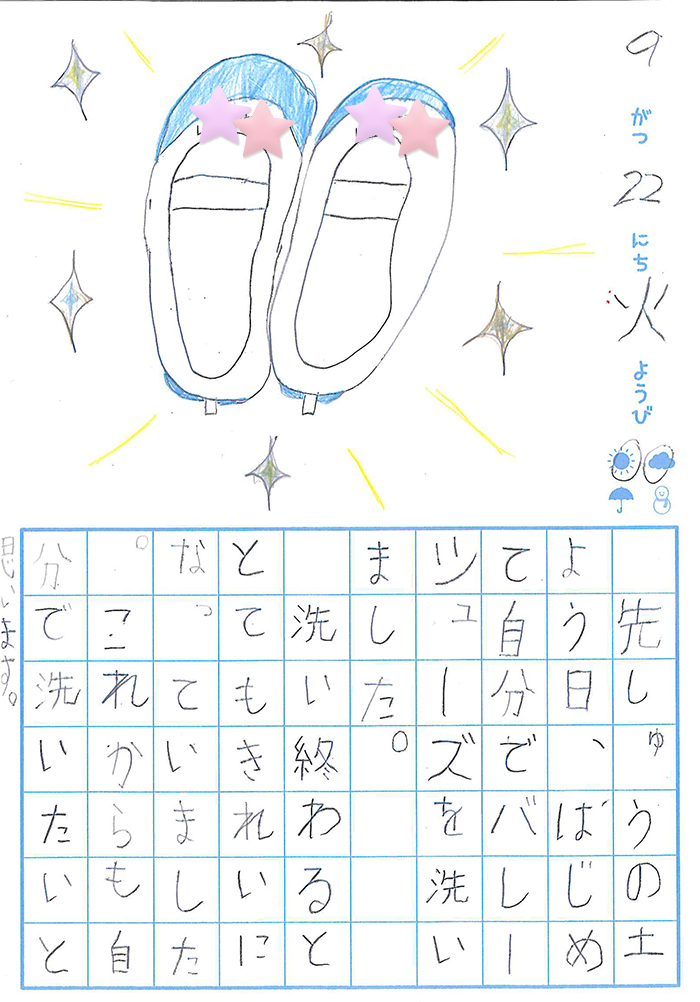 9がつ22にち火ようび
先しゅうの土
よう日、ばじめ
て自分でバレー
シューズを洗い
ました。
洗い終わると
とてもきれいに
なっていました
。これからも自
分で洗いたいと
思います。